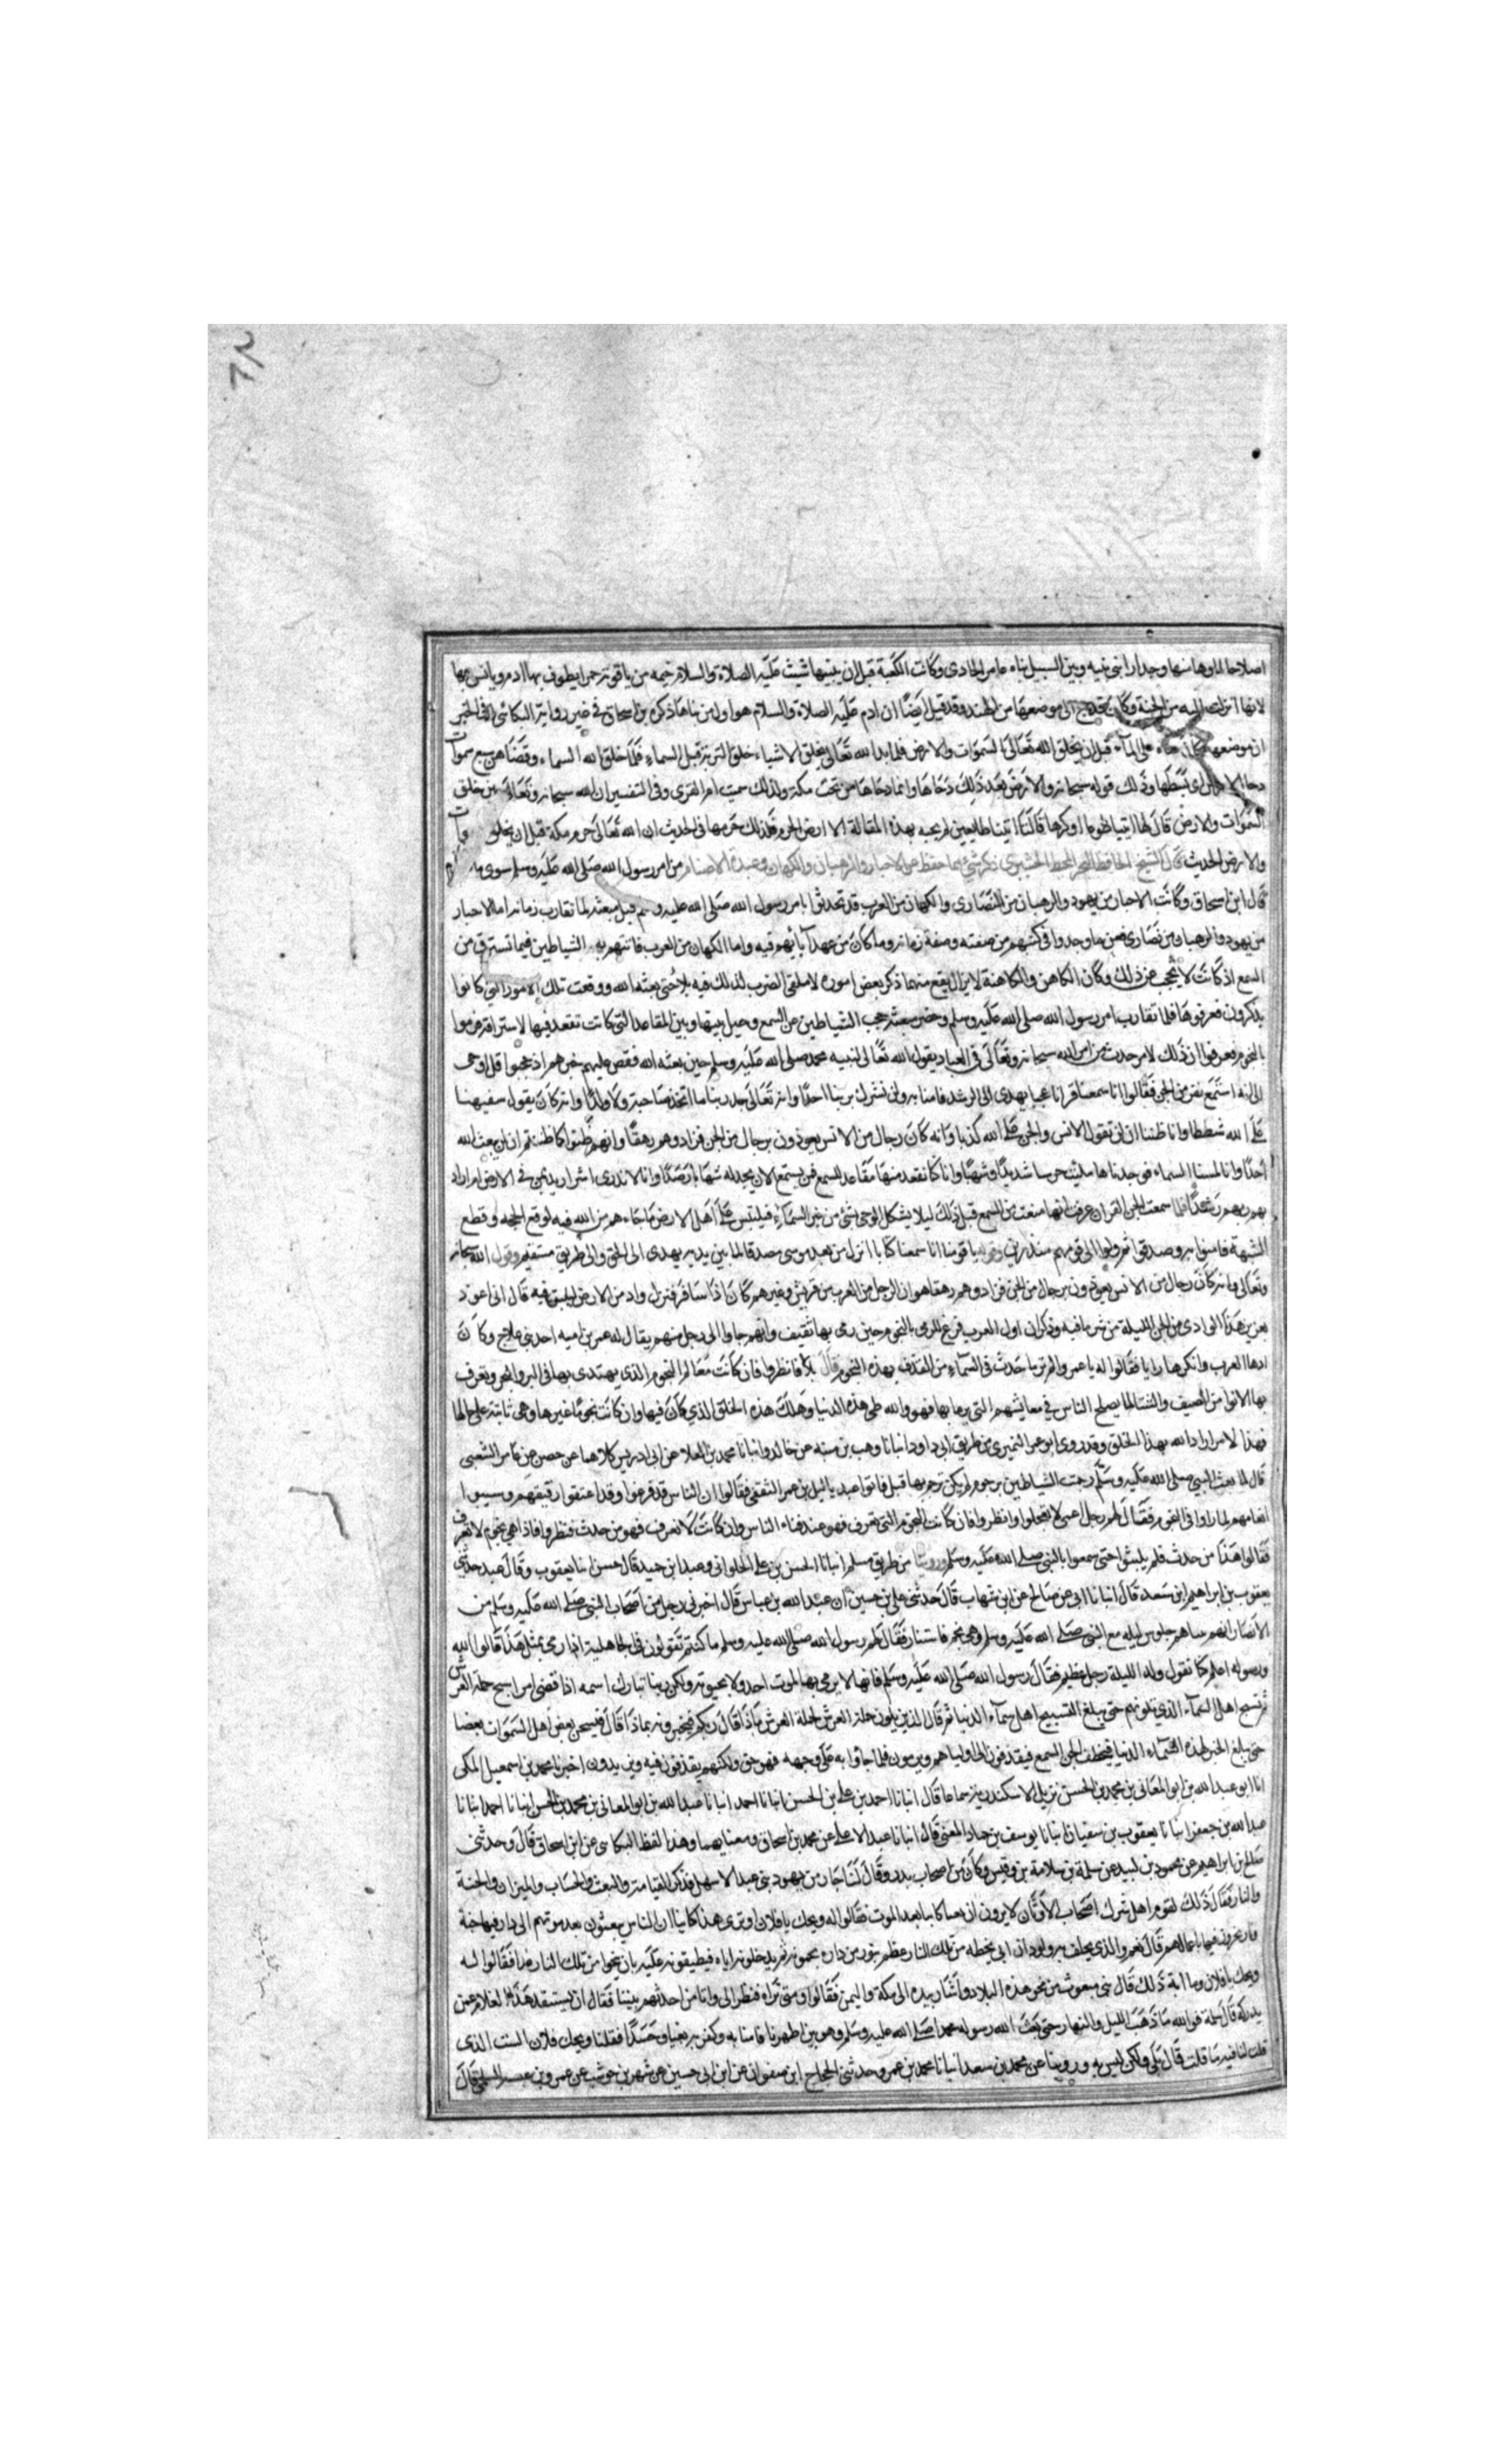 اصلاحا لما وها منها وجدارا بنى بينه وبين السيل بناه عامر الجادر وكانت الكعبة قبل ان يبنيها شيث عليه الصلاة والسلام خيمه من ياقوتة حمرا يطوف بها ادم ويانس بها
لانها انزلت اليه من الجنة وكان قد حج الى موضعها من الهند وقد قيل ايضا ان ادم عليه الصلاة والسلام هو اول من بناها ذكره بن اسحاق في غير رواية البكائي وفي الخبر
ان موضعها كان غثاء على الماء قبل ان يخلق الله تعالى السموات والارض فلما بدا الله تعالى بخلق الاشياء خلق التربة قبل السماء فلما خلق الله السماء وقضاهن سبع سموات
دحا الارض اى بسطها وذلك قوله سبحانه والارض بعد ذلك دحاها وانما دحاها من تحت مكة ولذلك سميت ام القرى وفى التفسير ان الله سبحانه وتعالى حين خلق
السموات والارض قال لها ائتيا طوعا او كرها قالتا اتينا طايعين لم يجبه بهذه المقالة الا ارض الحرم فلذلك حرمها فى الحديث ان الله تعالى حرم مكة قبل ان يخلق السموات
والارض الحديث ذكر شئ مما حفظ من الاحبار والرهبان والكهان وعبدة الاصنام من امر رسول الله صلى الله عليه وسلم سوى ما
قال ابن اسحاق وكانت الاحبار من يهود والرهبان من النصارى والكهان من العرب قد تحدثوا بامر رسول الله صلى الله عليه وسلم قبل مبعثه لما تقارب زمانه اما الاحبار
من يهود والرهبان من نصارى فعن ما وجدوا فى كتبهم من صفته وصفة زمانه وما كان من عهد انبيائهم فيه واما الكهان من العرب فاتتهم به الشياطين فيما تسترق من
السمع اذ كانت لا تحجب عن ذلك وكان الكاهن والكاهنة لا يزال يقع منهما ذكر بعض اموره لا ملقى العرب لذلك فيه بالا حتى بعثه الله ووقعت تلك الامور التى كانوا
يذكرون فعرفوها فلما تقارب امر رسول الله صلى الله عليه وسلم وحضر مبعثه حجب الشياطين عن السمع وحيل بينها وبين المقاعد التى كانت تقعد فيها لاستراقه فرموا
بالنجوم فعرفوا ان ذلك لامر حدث من امر الله سبحانه وتعالى فى العباد يقول الله تعالى لنبيه محمد صلى الله عليه وسلم حين بعثه الله فقص عليهم خبرهم اذ حجبوا قل اوحى
الى انه استمع نفر من الجن فقالوا انا سمعنا قرانا عجبا يهدى الى الرشد فامنا به ولن نشرك بربنا احدا وانه تعالى جد ربنا ما اتخذ صاحبة ولا ولدا وانه كان يقول سفيهنا
على الله شططا وانا ظننا ان لن تقول الانس والجن على الله كذبا وانه كان رجال من الانس يعوذون برجال من الجن فزادوهم رهقا وانهم ظنوا كما ظننتم ان لن يبعث الله
احدا وانا لمسنا السماء فوجدناها ملئت حرسا شديدا وشهبا وانا كنا نقعد منها مقاعد للسمع فمن يستمع الان يجد له شهابا رصدا وانا لا ندرى اشر اريد بمن فى الارض ام اراد
بهم ربهم رشدا فلما سمعت الجن القران عرفت انها منعت من السمع قبل ذلك ليلا يشكل الوحى بشئ من خبر السماء فيلتبس على اهل الارض ما جاءهم من الله فيه لوقع الحجة وقطع
الشبهة فامنوا به وصدقوا ثم ولوا الى قومهم منذرين وقوله يا قومنا انا سمعنا كتابا انزل من بعد موسى مصدقا لما بين يديه يهدى الى الحق والى طريق مستقيم وقول الله سبحانه
وتعالى وانه كان رجال من الانس يعوذون برجال من الجن فزادوهم رهقا هو ان الرجل من العرب من قريش وغيرهم كان اذا سافر فنزل واد من الارض ليبيت فيه قال انى اعوذ
بعزيز هذا الوادى من الجن الليلة من شر ما فيه وذكر ان اول العرب فزع للرمى بالنجوم حين رمى بها ثقيف وانهم جاوا الى رجل منهم يقال له عمرو بن اميه احد بنى علاج وكان
ادها العرب وانكرها رايا فقالوا له يا عمرو الم تر ما حدث فى السماء من القذف بهذه النجوم قال بلا فانظروا فان كانت معالم النجوم الذى يهتدى بها فى البر والبحر وتعرف
بها الانوا من الصيف والشتا لما يصلح الناس فى معايشهم التى يرما بها فهو والله طى هذه الدنيا وهلاك هذه الخلق الذى كان فيها وان كانت نجوما غيرها وهى ثابتة على حالها
فهذا لامر اراد الله بهذا الخلق وقد روى ابو عمر النميرى من طريق ابى داود انبانا وهب بن منبه عن خالد وانبانا محمد بن العلا عن ابى ادريس كلاهما عن حصين عن عامر الشعبى
قال لما بعث النبى صلى الله عليه وسلم رجمت الشياطين برجوم لم يكن ترجم بها قبل فاتوا عبد ياليل بن عمر الثقفى فقالوا ان الناس قد فزعوا وقد اعتقوا رقيقهم وسيبوا
انعامهم لما راوا فى النجوم فقال لهم رجل اعمى لا تعجلوا وانظروا فان كانت النجوم التى تعرف فهو عند فناء الناس وان كانت لا تعرف فهو من حدث فنظروا فاذا هي نجوم لا تعرف
فقالوا هذا من حدث فلم يلبثوا حتى سمعوا بالنبى صلى الله عليه وسلم وروينا من طريق مسلم انبانا الحسن بن على الحلوانى وعبد ابن حميد قال حسن انبا يعقوب وقال عبد حدثنى
يعقوب بن ابراهيم ابن سعد قال انبانا ابى عن صالح عن ابن شهاب قال حدثنى على بن حسين ان عبد الله بن عباس قال اخبرنى رجل من اصحاب النبى صلى الله عليه وسلم من
الانصار انهم بينما هم جلوس ليله مع النبى صلى الله عليه وسلم رمى بنجم فاستنار فقال لهم رسول الله صلى الله عليه وسلم ما كنتم تقولون فى الجاهلية اذا رمى بمثل هذا قالوا الله
ورسوله اعلم كنا نقول ولد الليلة رجل عظيم فقال رسول الله صلى الله عليه وسلم فانها لا يرمى بها لموت احد ولا لحيوته ولكن ربنا تبارك اسمه اذا قضى امرا سبح حملة العرش
ثم سبح اهل السماء الذي يلونهم حتى يبلغ التسبيح اهل سماء الدنيا ثم قال الذين يلون حملة العرش لحملة العرش ماذا قال ربكم فيخبرونهم بماذا قال فيستخبر بعض اهل السموات بعضا
حتى يبلغ الخبر هذه السماء الدنيا فيخطف الجن السمع فيقذفون الى اوليائهم ويرمون فلما جاوا به على وجهه فهو حق ولكنهم يقذفون فيه ويزيدون اخبرنا محمد بن اسمعيل المكى
انا ابو عبد الله بن ابو المعانى بن محمد بن الحسن نزيل الاسكندرية سماعا قال انبانا احمد بن على بن الحسن انبانا احمد انبانا عبد الله بن ابو المعانى بن محمد بن الحسن انبانا احمد انبانا
عبد الله بن جعفر انبانا يعقوب بن سفيان انبانا يوسف بن حماد المعنى قال انبانا عبد الاعلى عن محمد بن اسحاق ومعناهما وهذا لفظ البكائى عن ابن اسحاق قال وحدثنى
صالح بن ابراهيم عن محمود بن لبيد عن سلمة بن سلامة بن وقيس وكان من اصحاب بدر وقال لنا جار من يهود بنى عبد الاسهل فذكر القيامة والبعث والحساب والميزان والجنة
والنار فقال ذلك لقوم اهل شرك اصحاب الاوثان لا يرون ان بعثا كاينا بعد الموت فقالوا له ويحك يا فلان او ترى هذا كاينا ان الناس يبعثون بعد موتهم الى دار فيها جنة
ونار يجزون فيها باعمالهم قال نعم والذى يحلف به ولود ان لى بحظه من تلك النار عظم تنور من داره يحمونه ثم يدخلونه اياه فيطبقونه عليه بان ينجوا من تلك النار غدا فقالوا له
ويحك يا فلان وما اية ذلك قال نبى مبعوث من نحو هذه البلاد واشار بيده الى مكة واليمن فقالوا ومتى نراه فنظر الى وانا من احدثهم بيننا فقال ان يستنفد هذا الغلام عمره
يدركه قال سلمة فوالله ما ذهب الليل والنهار حتى بعث الله رسوله محمدا صلى الله عليه وسلم وهو بين اظهرنا فامنا به وكفر به بغيا وحسدا فقلنا ويحك فلان الست الذى
قلت لنا فيه ما قلت قال بلى ولكن ليس به وروينا عن محمد بن سعد انبانا محمد بن عمر وحدثنى الحجاج ابن صفوان عن ابن ابى حسين عن شهر بن حوشب عن عمرو بن عبسة السلمى قال